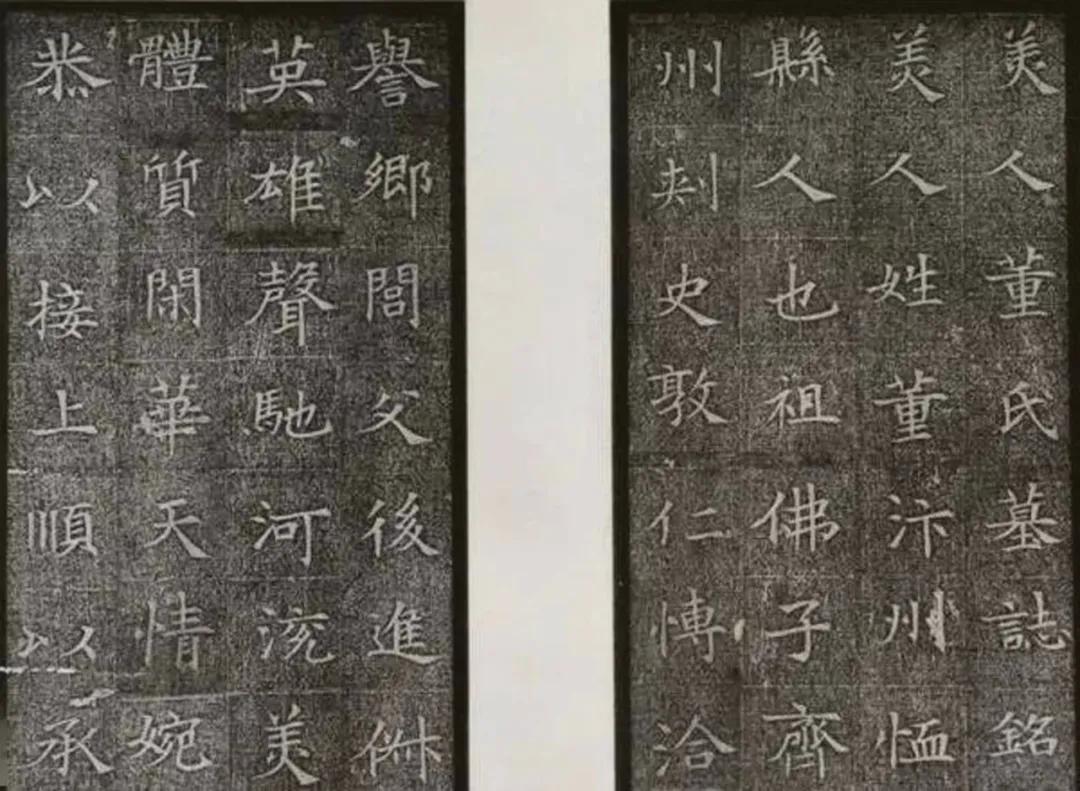 美人董氏墓誌銘
美人姓董汴州恤
縣人也祖佛子齊
州刾史敦仁愽洽
譽鄉閭父後進俯
英雄聲馳河涗美
體質閑華天情婉
恭以接上順以承